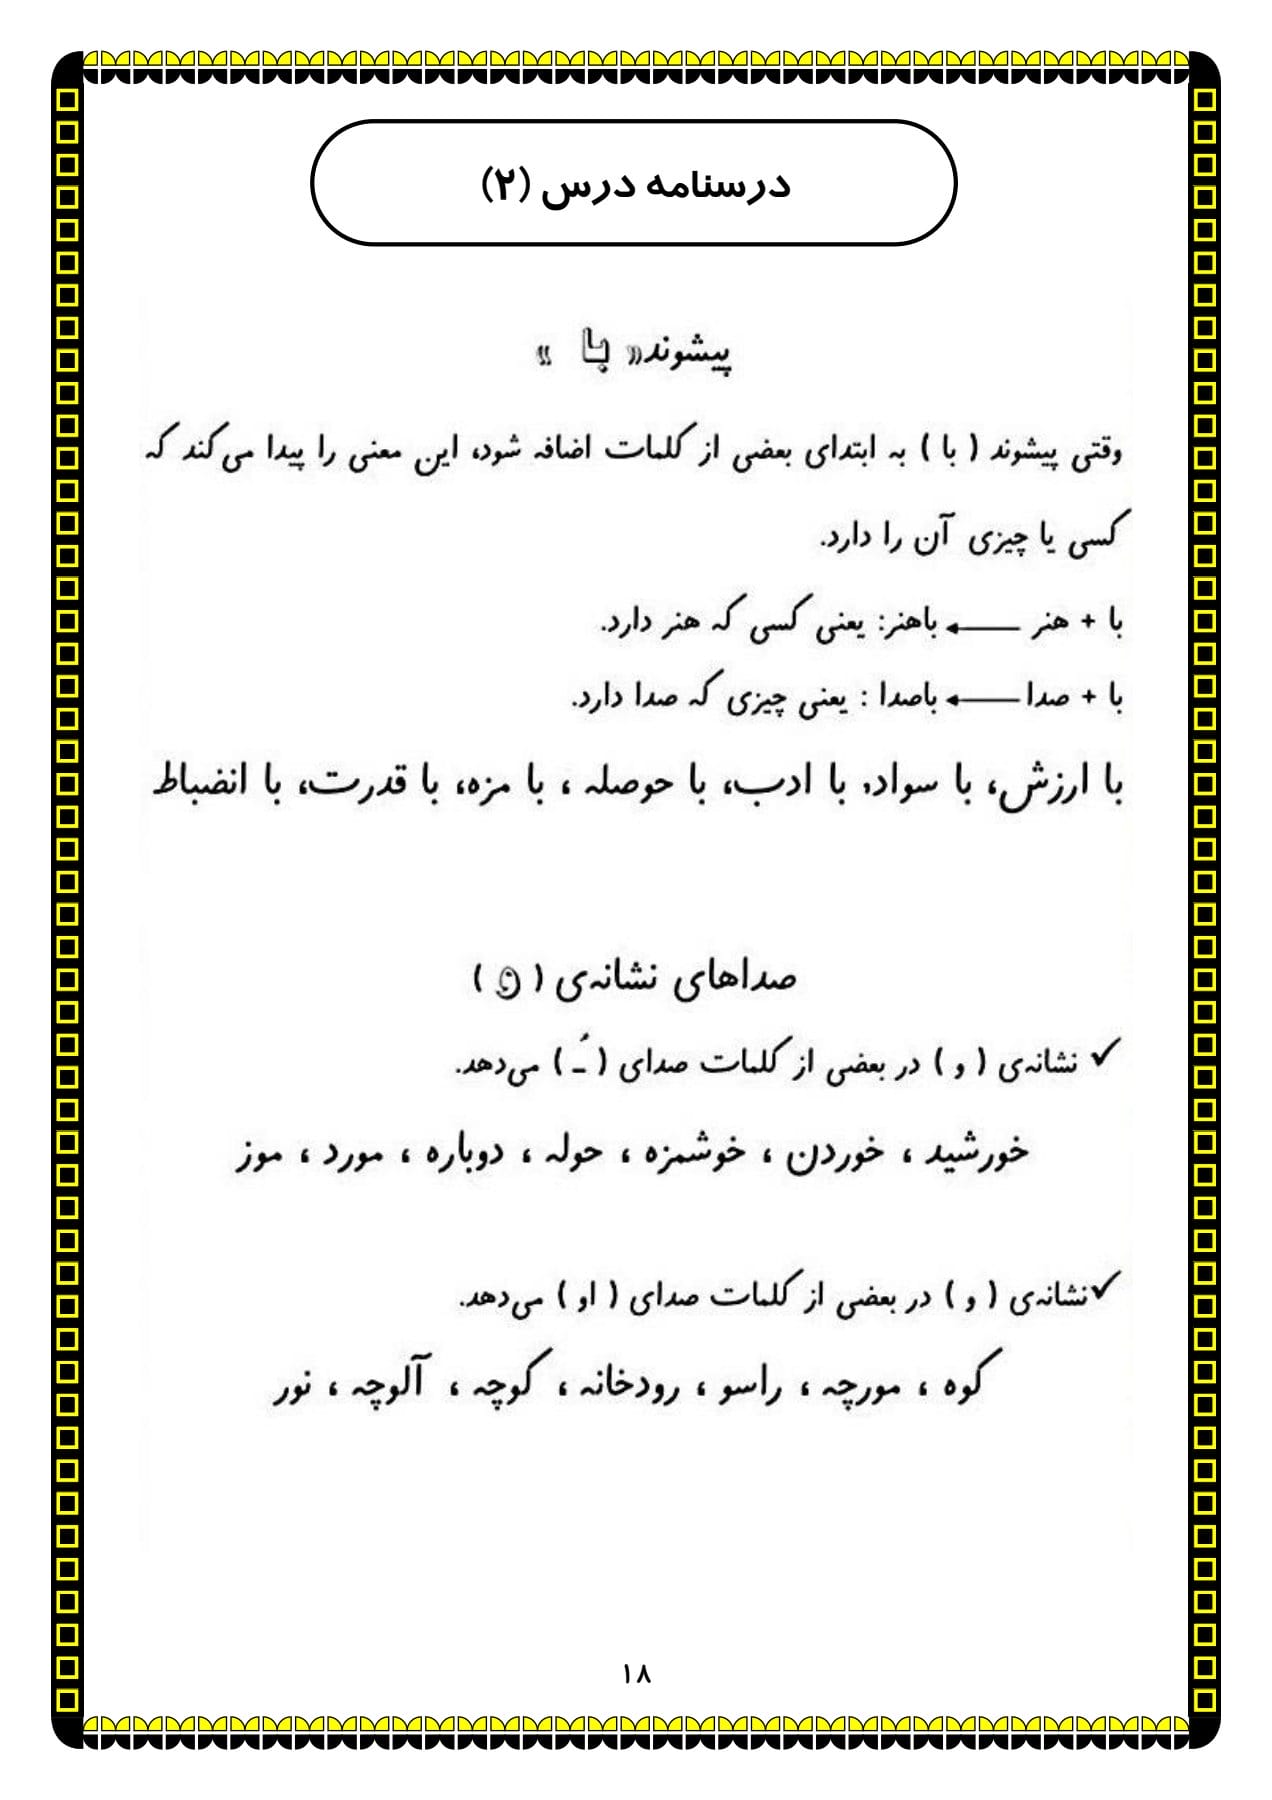 درسنامه درس (۲)
پیشوند« با »
وقتی پیشوند ( با ) به ابتدای بعضی از کلمات اضافه شود، این معنی را پیدا می‌کند که
کسی یا چیزی آن را دارد.
با + هنر ← باهنر: یعنی کسی که هنر دارد.
با + صدا ← باصدا : یعنی چیزی که صدا دارد.
با ارزش، با سواد, با ادب، با حوصله ، با مزه، با قدرت، با انضباط
صداهای نشانه‌ی ( و )
✓ نشانه‌ی ( و ) در بعضی از کلمات صدای ( ـُ ) می‌دهد.
خورشید ، خوردن ، خوشمزه ، حوله ، دوباره ، مورد ، موز
✓ نشانه‌ی ( و ) در بعضی از کلمات صدای ( او ) می‌دهد.
کوه ، مورچه ، راسو ، رودخانه ، کوچه ، آلوچه ، نور
۱۸